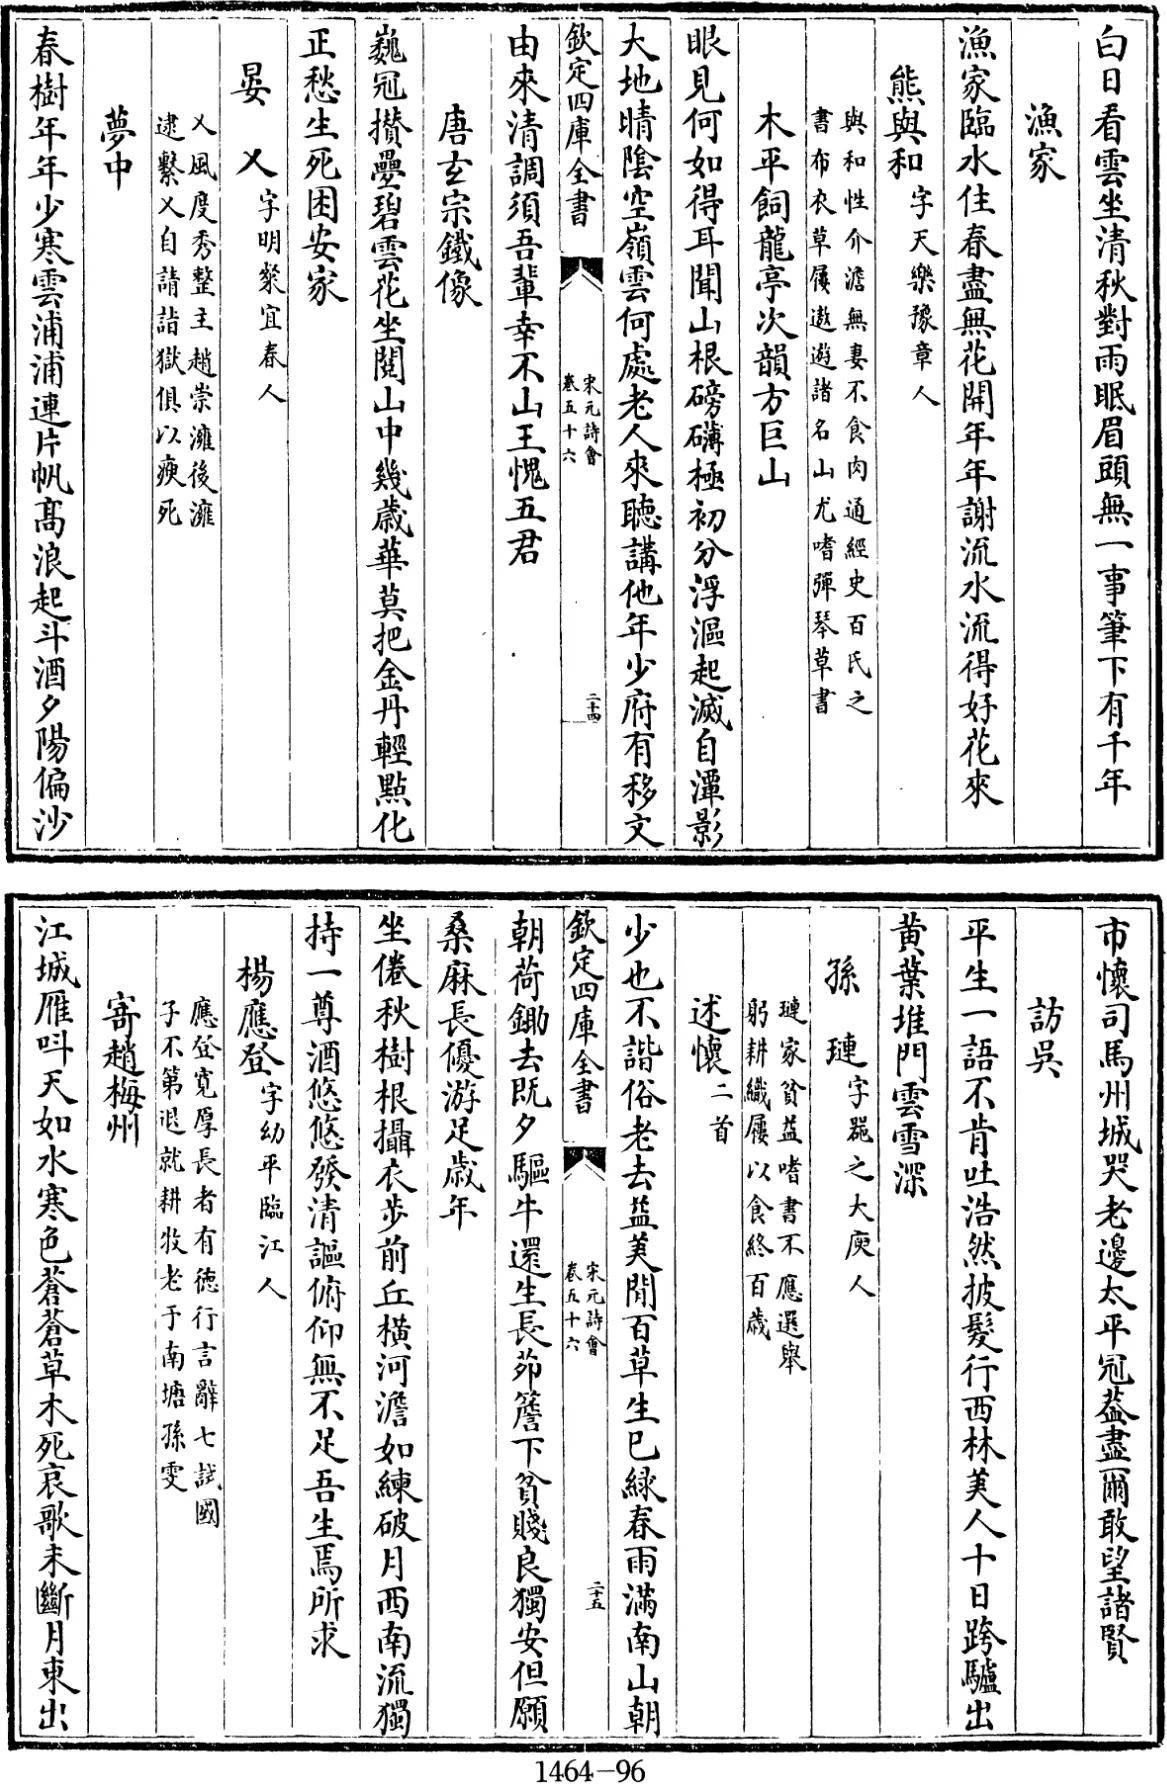 白日看雲坐清秋對雨眠眉頭無一事筆下有千年
漁家
漁家臨水住春盡無花開年年謝流水流得好花來
熊與和字天樂豫章人
與和性介澹無妻不食肉通經史百氏之
書布衣草屨遨遊諸名山尤嗜彈琴草書
木平飼龍亭次韻方巨山
眼見何如得耳聞山根磅礴極初分浮漚起滅自潭影
大地晴陰空嶺雲何處老人來聴講他年少府有移文
欽定四庫全書
宋元詩會
卷五十六
二十四
由來清調須吾輩幸不山王愧五君
唐玄宗鐵像
巍冠攢疊碧雲花坐閱山中幾歳華莫把金丹輕點化
正愁生死困安家
晏乂字明粲宜春人
乂風度秀整主趙崇濰後濰
逮繫乂自請詣獄俱以瘐死
夢中
春樹年年少寒雲浦浦連片帆髙浪起斗酒夕陽偏沙
市懷司馬州城哭老邊太平冠葢盡爾敢望諸賢
訪吳
平生一語不肯吐浩然披髮行西林美人十日跨驢出
黄葉堆門雲雪深
孫璉字器之大庾人
璉家貧益嗜書不應選舉
躬耕織屨以食終百歳
述懷二首
少也不諧俗老去益美閒百草生已緑春雨滿南山朝
欽定四庫全書
宋元詩會
卷五十六
二十五
朝荷鋤去既夕驅牛還生長茆簷下貧賤良獨安但願
桑麻長優游足歳年
坐倦秋樹根攝衣步前丘横河澹如練破月西南流獨
持一尊酒悠悠發清謳俯仰無不足吾生焉所求
楊應登字幼平臨江人
應登寛厚長者有徳行言辭七試國
子不第退就耕牧老于南塘孫雯
寄趙梅州
江城雁呌天如水寒色蒼蒼草木死哀歌未斷月東出
1464-96